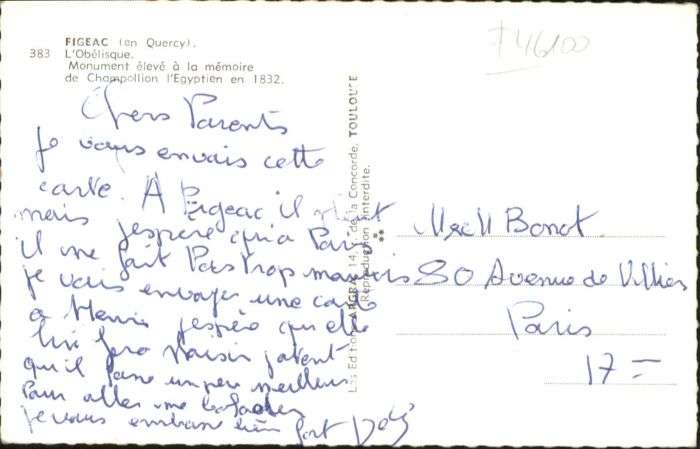 FIGEAC (en Quercy).
383 L'Obélisque.
Monument élevé à la mémoire
de Champollion l'Egyptien en 1832.
F46100
Chers Parents
je vous envais cette
carte. A Figeac il pleut
mais j'espère qu'a Paris
il ne fait Pas trop mauvais
je vais envoyer une carte
a Henri j'espère qu'elle
lui fera plaisir
qu'il fasse un peu meilleur
Pour aller me balader
je vous embrasse bien fort
Les Editions ARGRA 14, de la Concorde, TOULOUSE
Reproduction interdite.
Mr et M Bonot
80 Avenue de Villiers
Paris
17